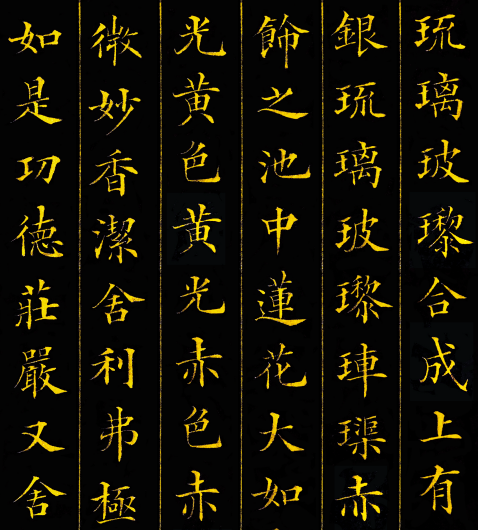 琉璃玻瓈合成上有
銀琉璃玻瓈𤥭璖赤
飾之池中蓮花大如
光黄色黄光赤色赤
微妙香潔舍利弗極
如是功徳莊嚴又舍